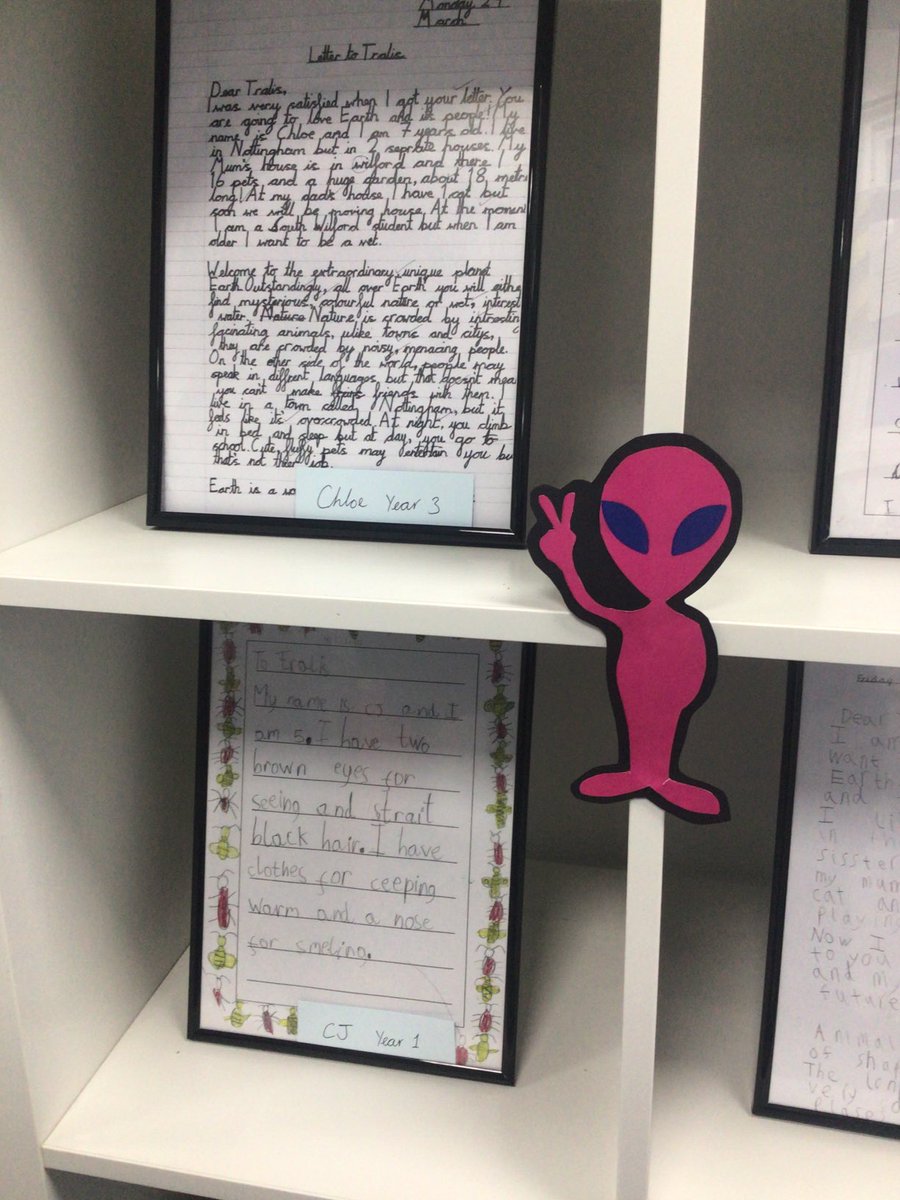 Monday 24
March
Letter to Tralis
Dear Tralis,
I was very satisfied when I got your letter. You
are going to love Earth and its people! My
name is Chloe and I am 7 years old. I live
in Nottingham but in 2 seprate houses. My
Mum's house is in wilford and there I
16 pets and a huge garden, about 18 metre
long! At my dad's house I have 1 cat but
soon we will be moving house. At the moment
I am a South Wilford student but when I am
older I want to be a vet.
Welcome to the extraordinary, unique planet
Earth. Outstandingly, all over Earth you will eithe
find mysterious, colourful nature or wet, interest
water. Nature is crowded by intresting
facinating animals, ulike towns and citys,
they are crowded by noisy, menacing people.
On the other side of the world, people may
speak in diffrent languages but that doesn't mean
you can't make friends with them. I
live in a town called Nottingham, but it
feels like it's overcrowded. At night, you climb
in bed and sleep but at day, you go to
school. Cute, fluffy pets may entertain you bu
that's not their job.
Earth is a
Chloe Year 3
To Tralis
My name is CJ and I
am 5. I have two
brown eyes for
seeing and strait
black hair. I have
clothes for ceeping
warm and a nose
for smeling.
CJ Year 1
I
Friday
Dear
I am
want
Earth
and
I li
in th
sisster
my mum
cat an
playing
Now I
to you
and my
future
Animal
of shap
The lon
very